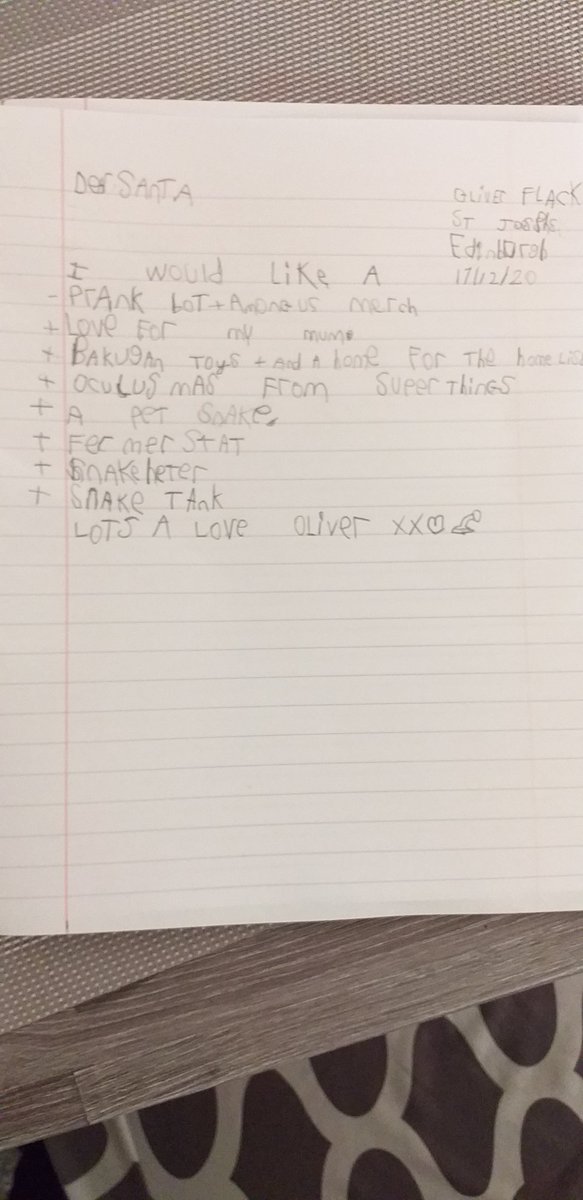 Der SANTA
OLiver FLACK
ST JosePhs
Edinburob
17/12/20
I would Like A
- PrAnk boT + Amoneus merch
+ Love For my mum
+ BAKUGAn Toys + And A home For The home Liss
+ OCULUS mAS From SuperThings
+ A PeT SnAKe
+ Fer mer STAT
+ SnAKe heter
+ SnAKe TAnk
LOTS A Love OLiver xx♡